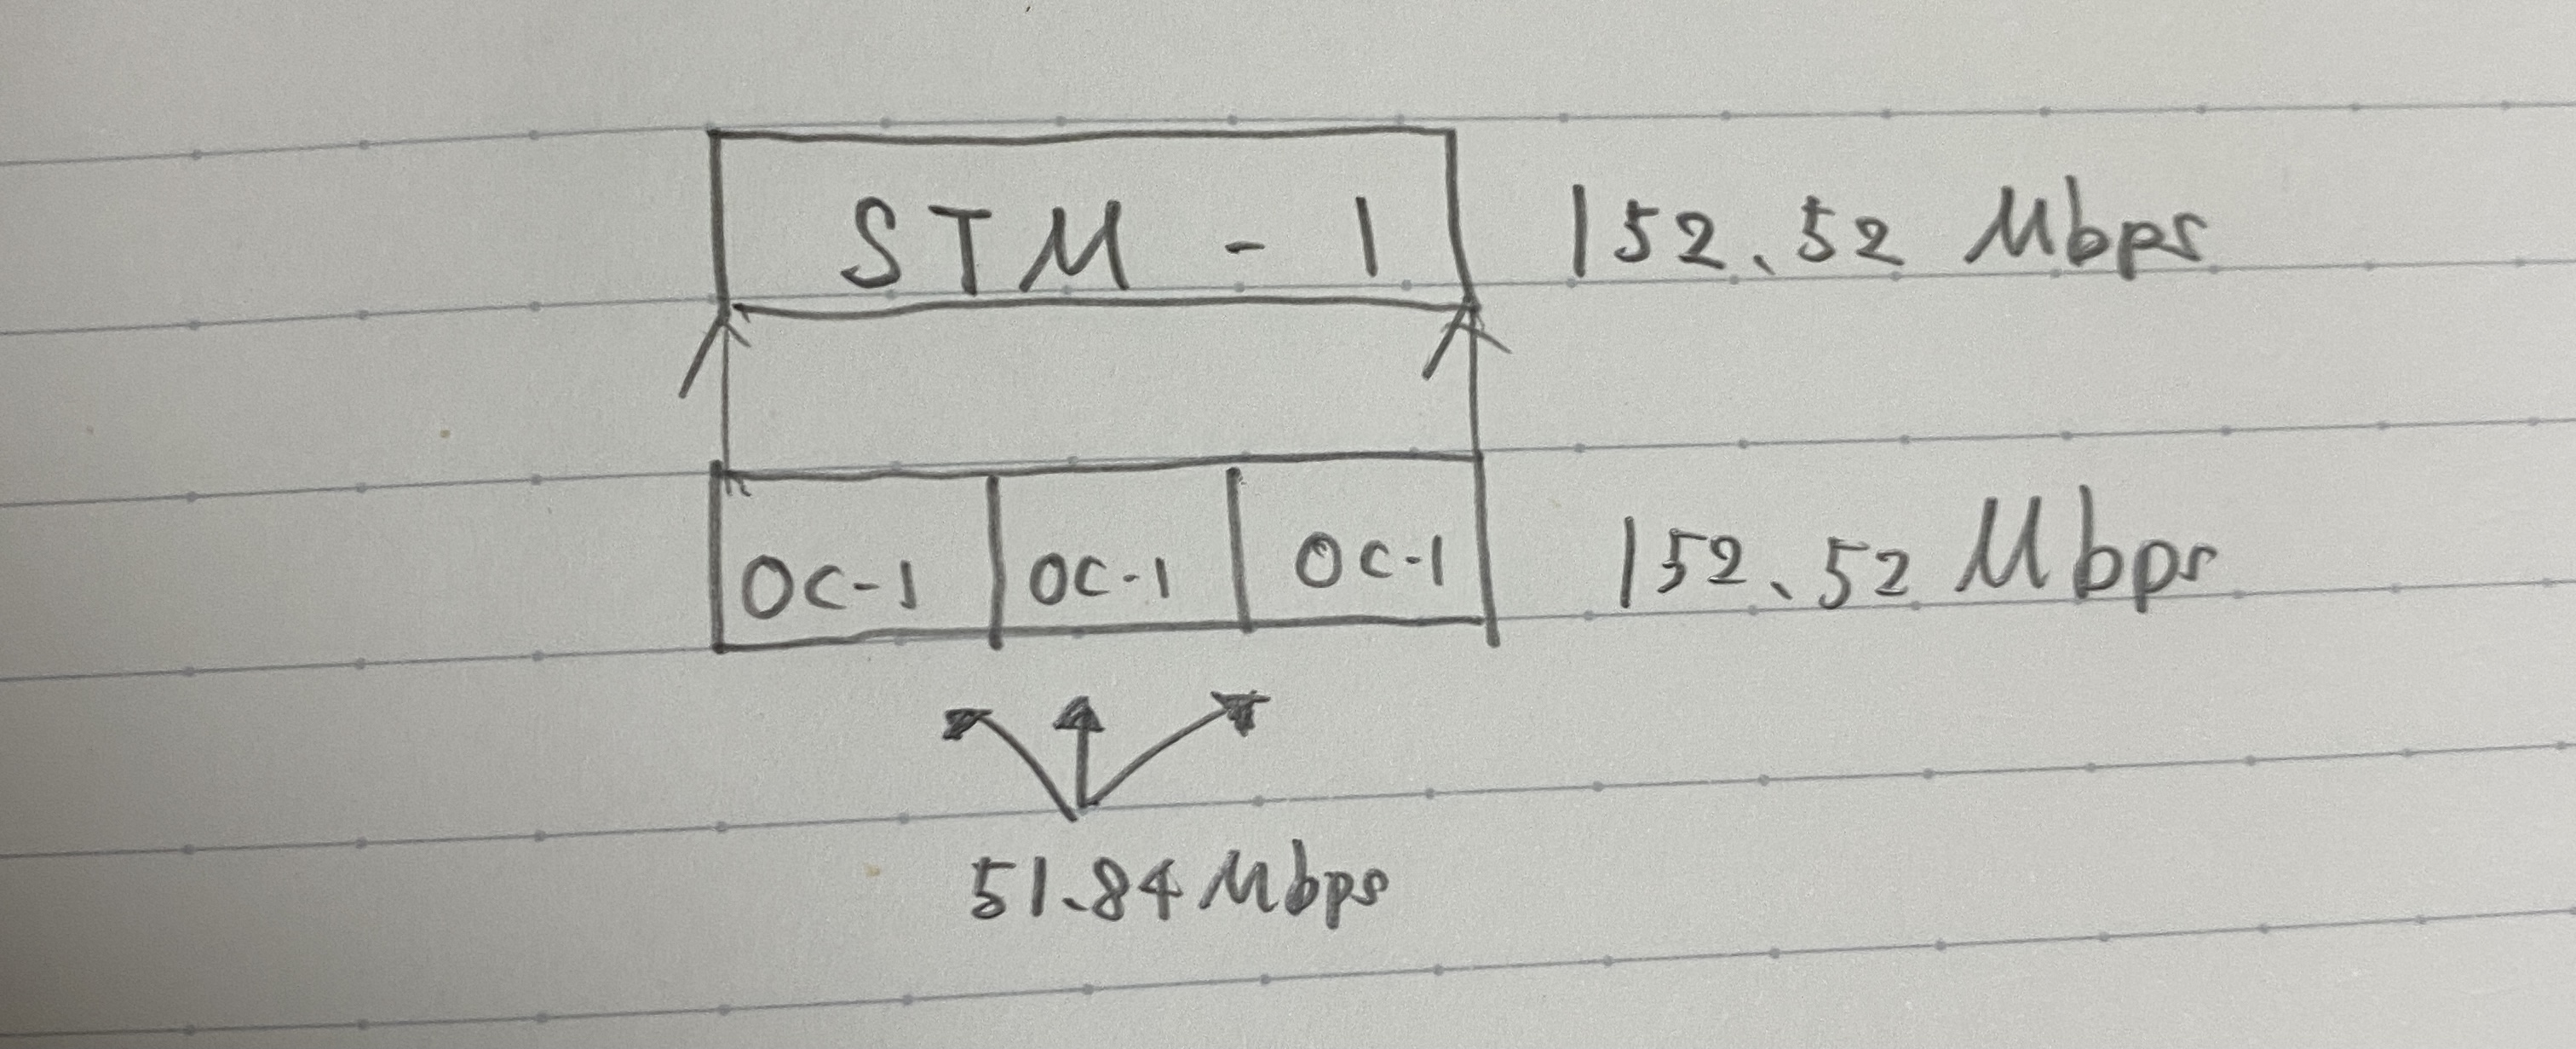 STM - 1 152.52 Mbps
OC-1 OC-1 OC-1 152.52 Mbps
51.84 Mbps